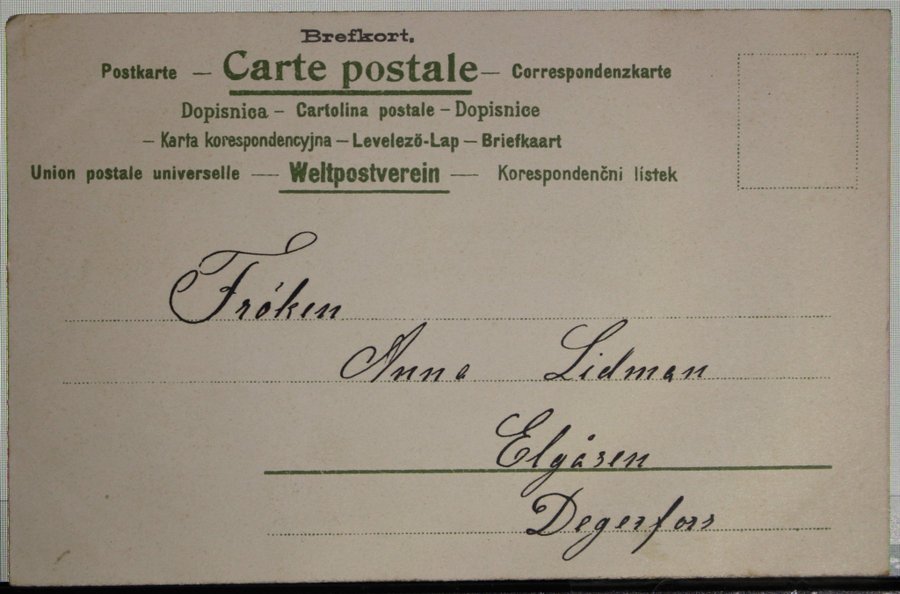 Brefkort.
Postkarte — Carte postale — Correspondenzkarte
Dopisnica – Cartolina postale – Dopisnice
– Karta korespondencyjna – Levelező-Lap – Briefkaart
Union postale universelle — Weltpostverein — Korespondenčni listek
Fröken
Anna Lidman
Elgåsen
Degerfors